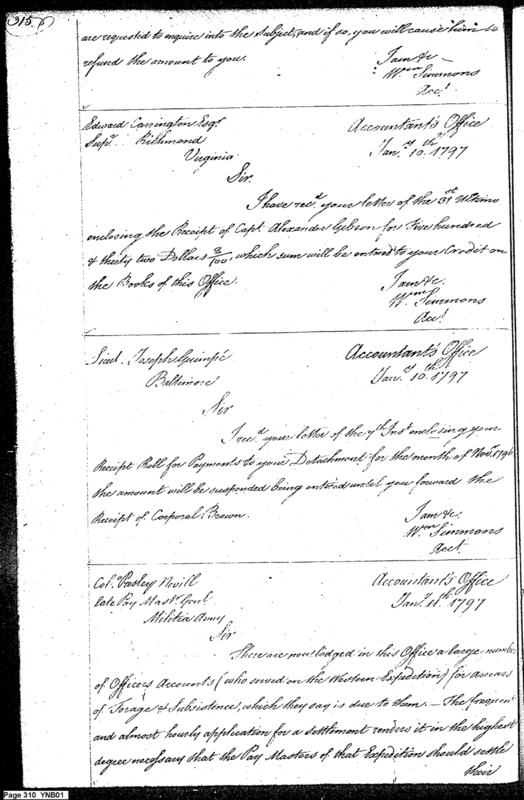 315
are requested to enquire into the Subject, and if so, you will cause him to
refund the amount to you.
I am &c
Wm Simmons
Acct
Edward Carrington Esqr
Supr. Richmond
Virginia
Accountant's Office
Jany. 10th. 1797
Sir.
I have recd. your letter of the 31st Ultimo
enclosing the Receipt of Capt Alexander Gibson for Five hundred
& thirty two Dollars 3/100, which sum will be entered to your Credit on
the Books of this Office.
I am &c.
Wm Simmons
Acct
Lieut. Joseph
Baltimore
Accountant's Office
Jany. 10th. 1797
Sir
I recd. your letter of the 7th Inst enclosing your
Receipt Roll for Payments to your Detachment for the month of Novr. 1796
the amount will be suspended being entered until you forward the
Receipt of Corporal Brown.
I am &c.
Wm Simmons
Acct
Col. Presley Nevill
late Pay Mastr. Genl.
Militia Army
Accountant's Office
Jany. 11th. 1797
Sir
There are now lodged in this Office a large number
of Officers Accounts (who served on the Western Expedition) for arrears
of Forage & Subsistence, which they say is due to them. — The frequent
and almost hourly application for a settlement renders it in the highest
degree necessary that the Pay Masters of that Expedition should settle
their
Page 310 YNB01